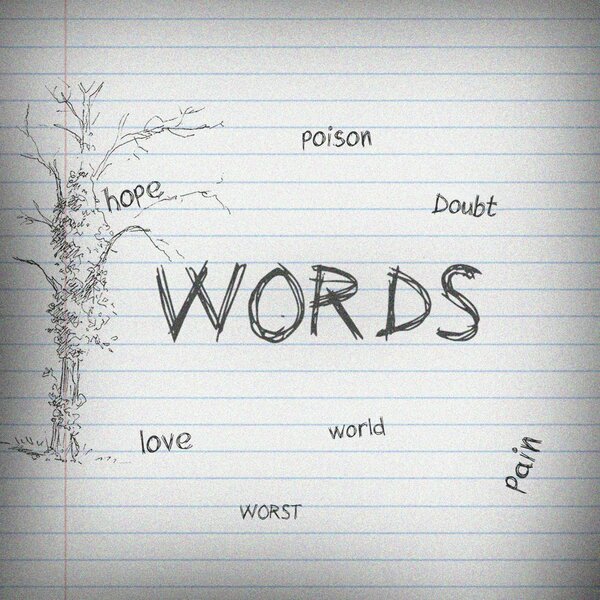 poison
hope
Doubt
WORDS
love
world
pain
WORST